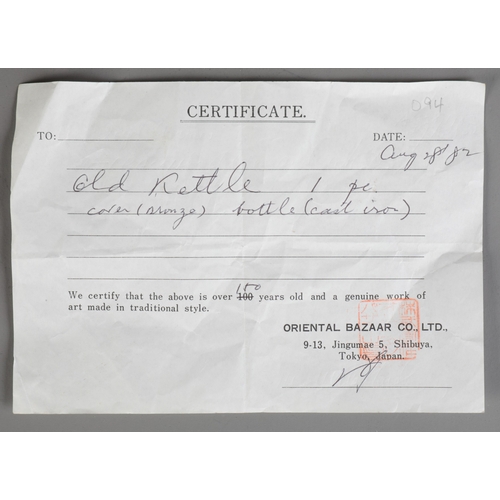 094
CERTIFICATE.
TO:
DATE:
Aug 28/82
Old Kettle 1 pc.
cover (bronze) bottle (cast iron)
150
We certify that the above is over 100 years old and a genuine work of
art made in traditional style.
ORIENTAL BAZAAR CO., LTD.,
9-13, Jingumae 5, Shibuya,
Tokyo, Japan.